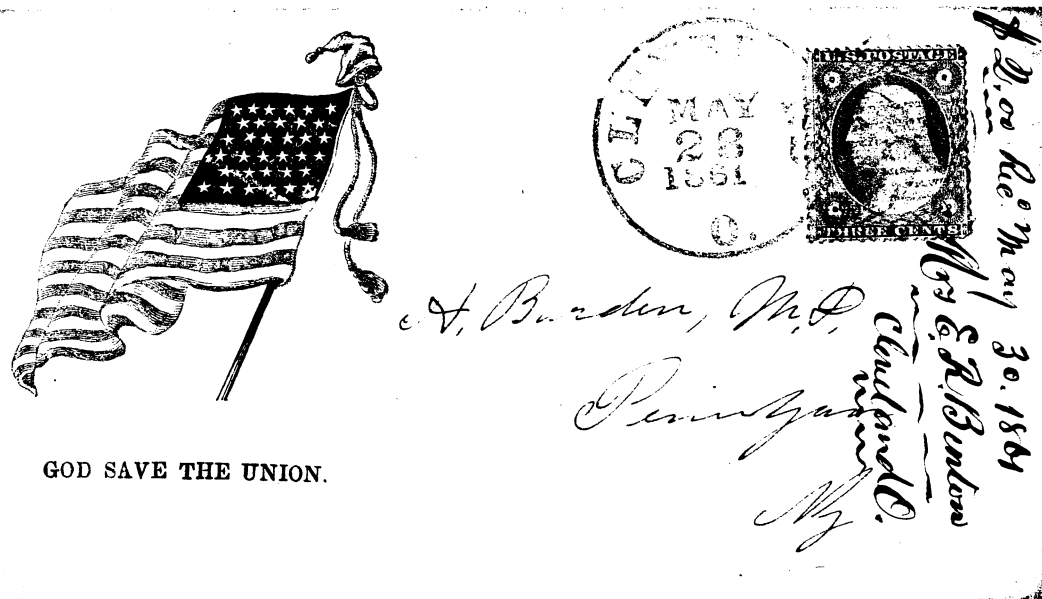 GOD SAVE THE UNION.
CLEVEL
MAY
28
1861
O.
U.S. POSTAGE
THREE CENTS
A. Burden, M.D.
Penn Yan
NY
Rec May 30. 1861
Mrs E. R. Benton
Cleveland O.